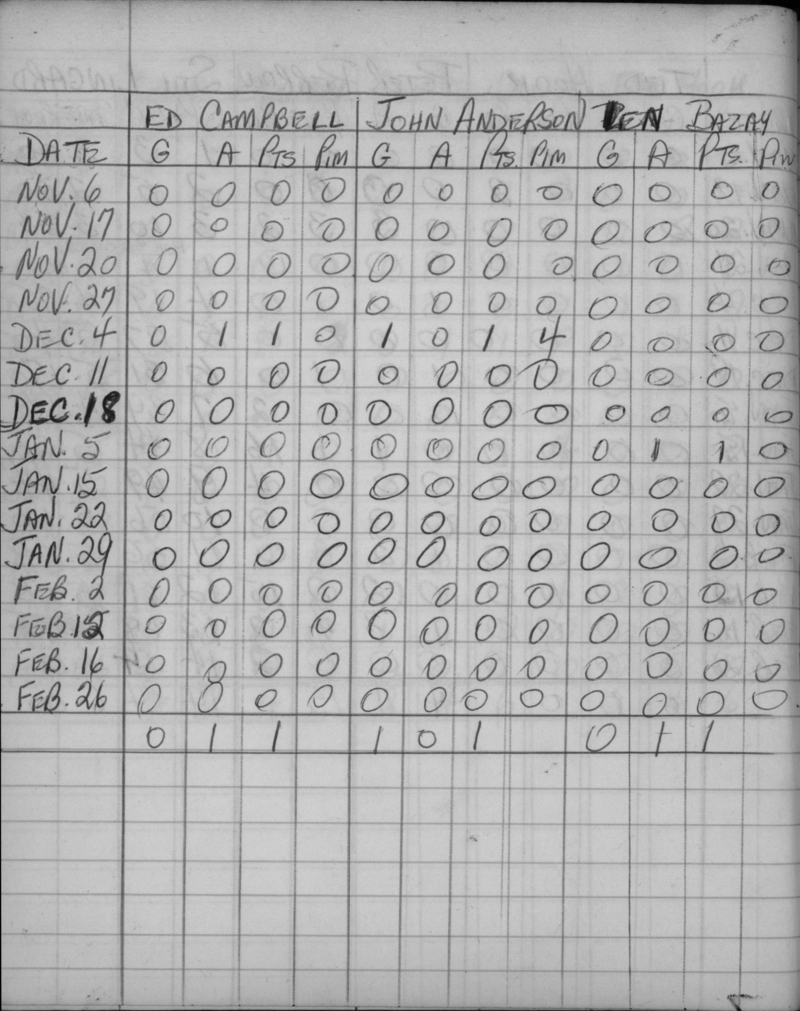 ED CAMPBELL JOHN ANDERSON LEN BAZAY
DATE G A PTS PIM G A PTS PIM G A PTS. PIM
NOV. 6 0 0 0 0 0 0 0 0 0 0 0 0
NOV. 17 0 0 0 0 0 0 0 0 0 0 0 0
NOV. 20 0 0 0 0 0 0 0 0 0 0 0 0
NOV. 27 0 0 0 0 0 0 0 0 0 0 0 0
DEC. 4 0 1 1 0 1 0 1 4 0 0 0 0
DEC. 11 0 0 0 0 0 0 0 0 0 0 0 0
DEC. 18 0 0 0 0 0 0 0 0 0 0 0 0
JAN. 5 0 0 0 0 0 0 0 0 0 1 1 0
JAN. 15 0 0 0 0 0 0 0 0 0 0 0 0
JAN. 22 0 0 0 0 0 0 0 0 0 0 0 0
JAN. 29 0 0 0 0 0 0 0 0 0 0 0 0
FEB. 2 0 0 0 0 0 0 0 0 0 0 0 0
FEB. 12 0 0 0 0 0 0 0 0 0 0 0 0
FEB. 16 0 0 0 0 0 0 0 0 0 0 0 0
FEB. 26 0 0 0 0 0 0 0 0 0 0 0 0
0 1 1 1 0 1 0 1 1